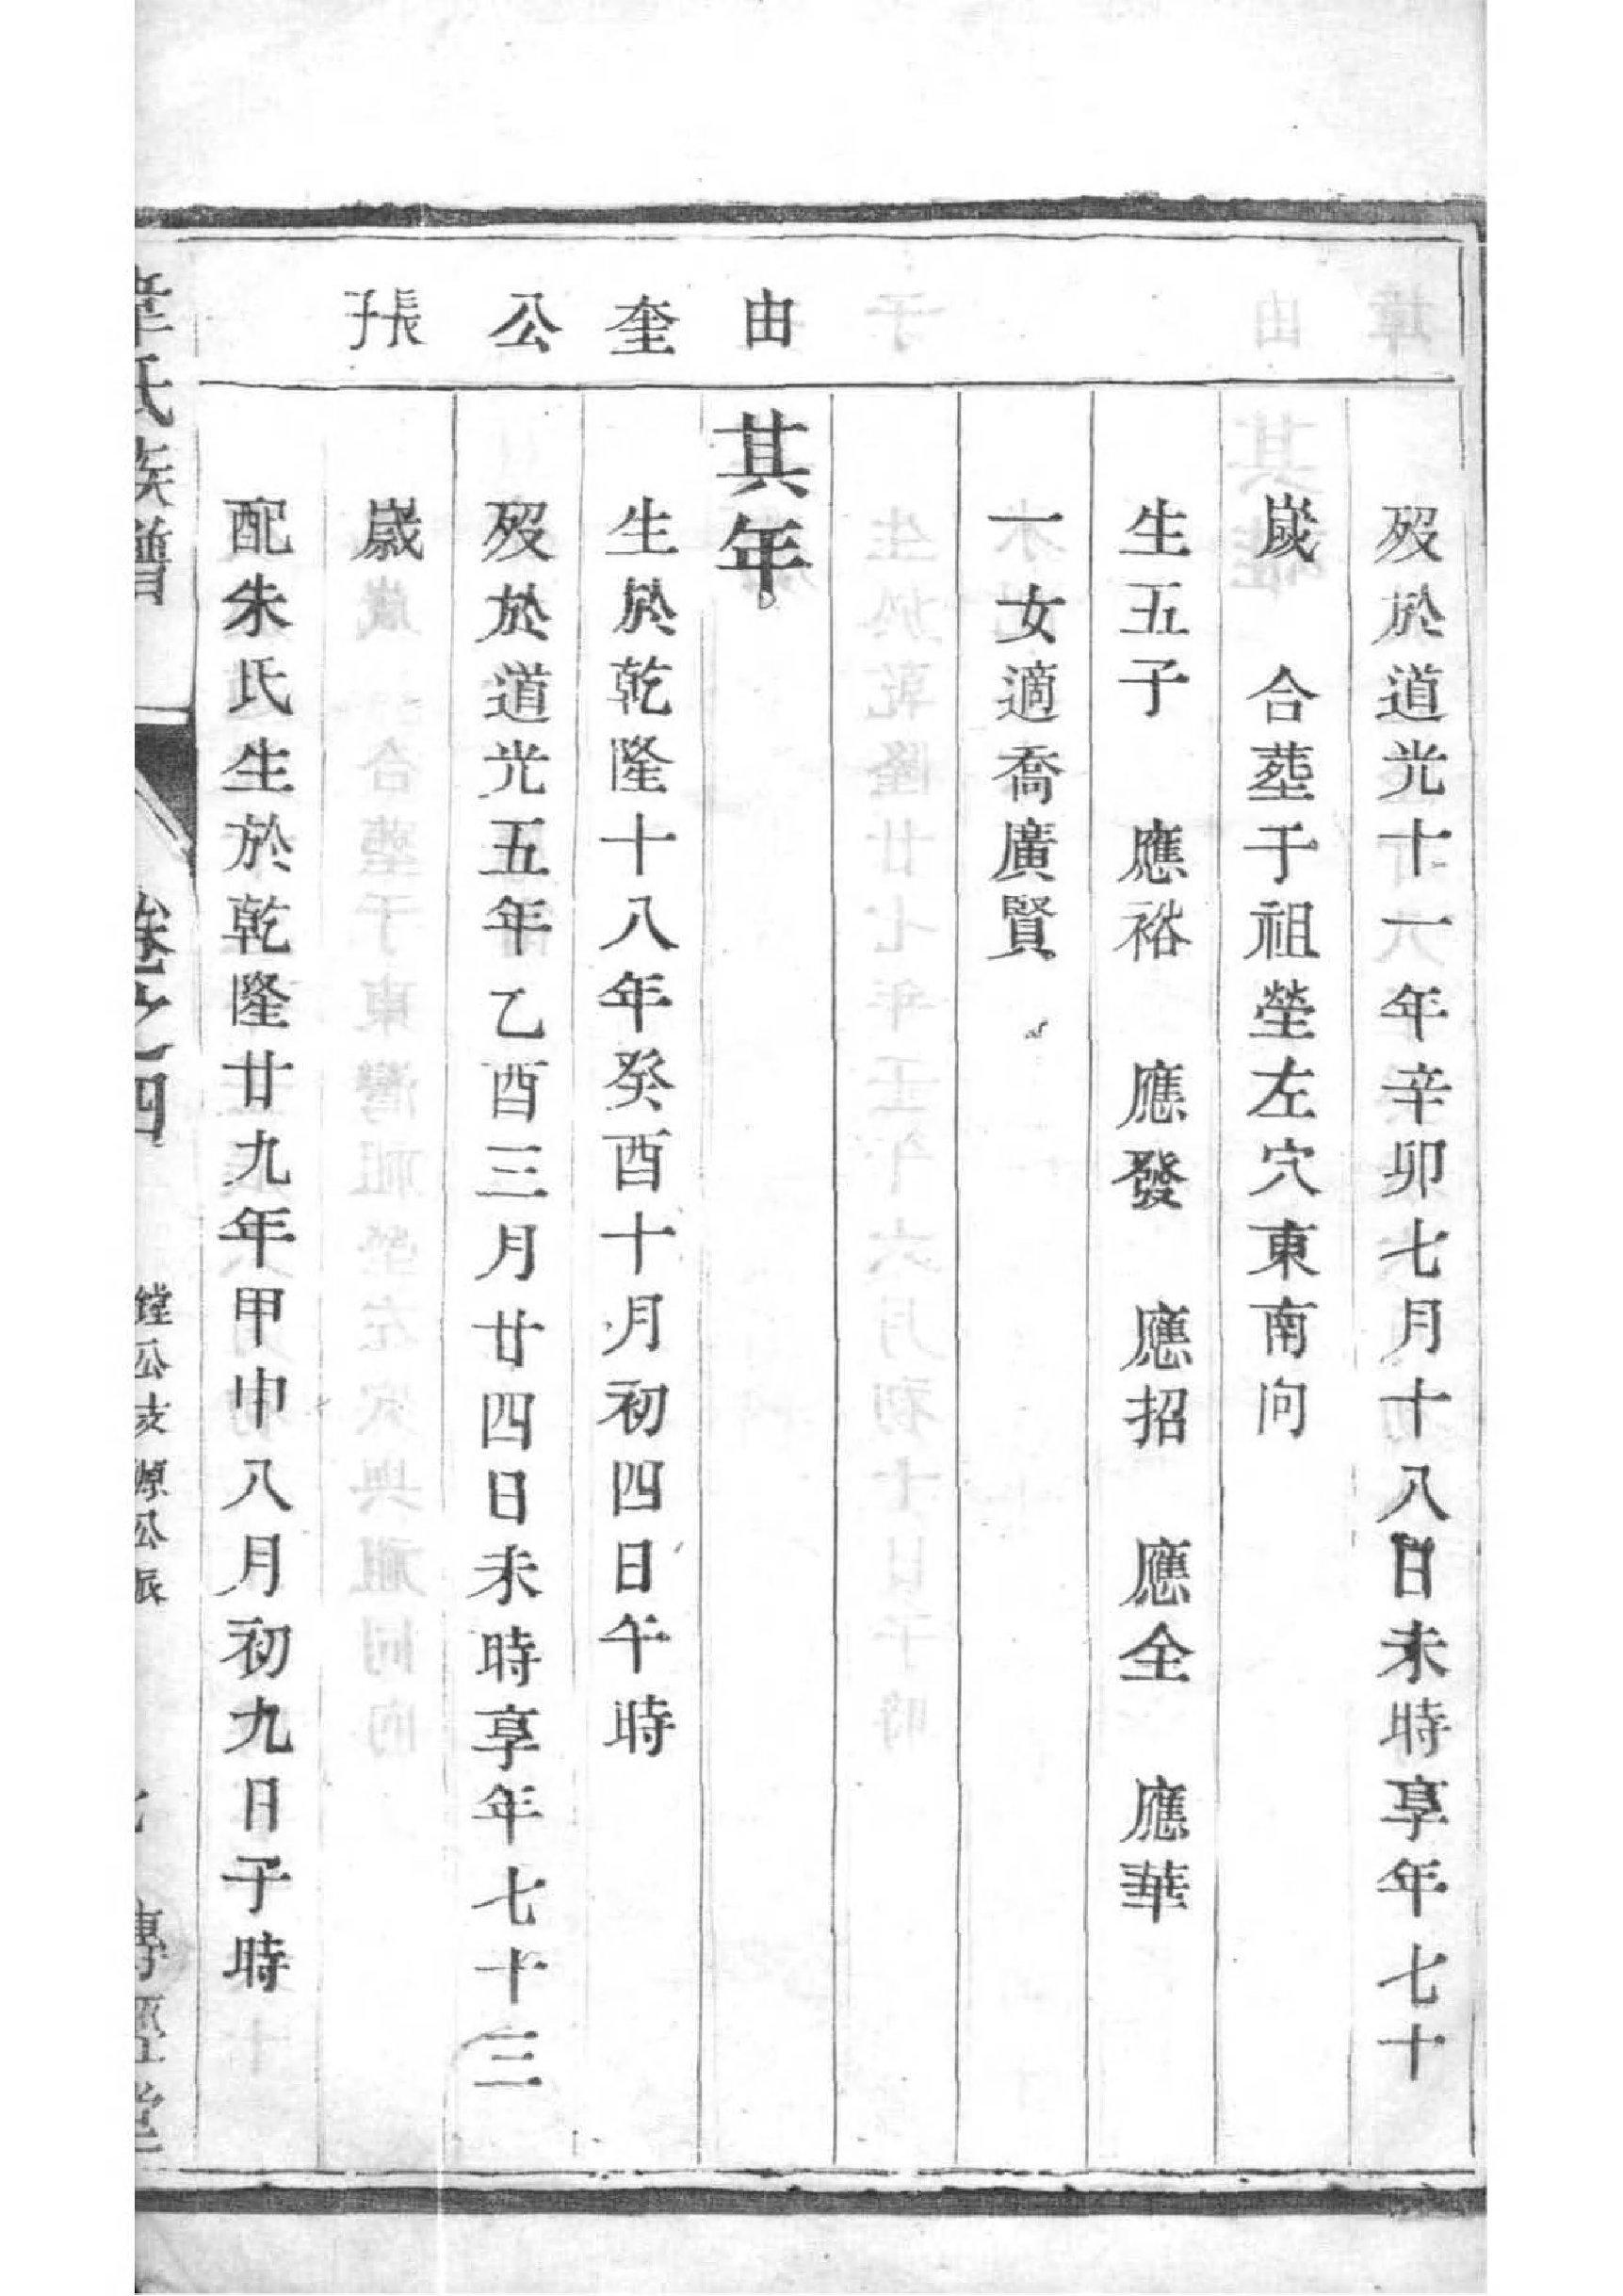 由奎公長子
歿於道光十一年辛卯七月十八日未時享年七十
歲　合塟于祖塋左穴東南向
生五子　應裕　應發　應招　應全　應華
一女適喬廣賢
其年
生於乾隆十八年癸酉十月初四日午時
歿於道光五年乙酉三月廿四日未時享年七十三
歲
配朱氏生於乾隆廿九年甲申八月初九日子時
氏族譜　卷之四　鏜公支源公派　傳經堂